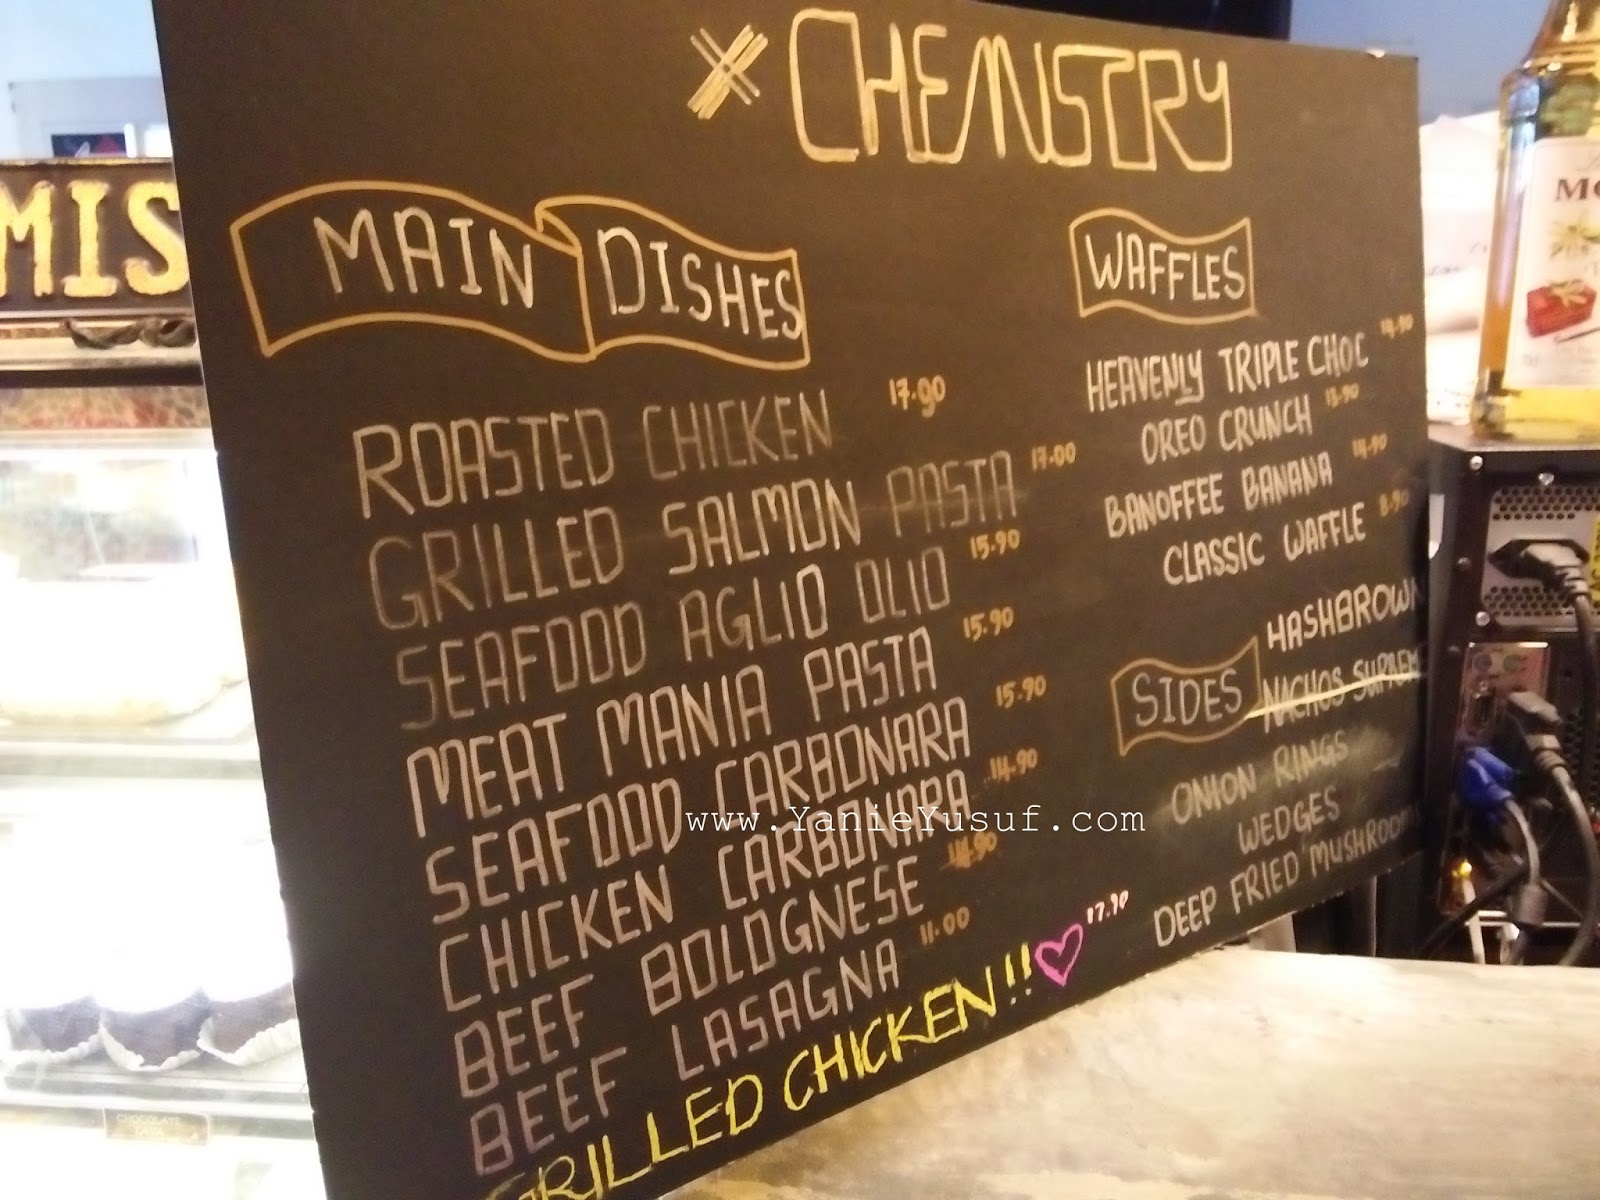 CHEMISTRY
MIS
MAIN DISHES
ROASTED CHICKEN 17.90
GRILLED SALMON PASTA 17.00
SEAFOOD AGLIO OLIO 15.90
MEAT MANIA PASTA 15.90
SEAFOOD CARBONARA 15.90
CHICKEN CARBONARA 14.90
BEEF BOLOGNESE 14.90
BEEF LASAGNA 11.00
GRILLED CHICKEN!! 17.90
WAFFLES
HEAVENLY TRIPLE CHOC 14.90
OREO CRUNCH 13.90
BANOFFEE BANANA 14.90
CLASSIC WAFFLE 8.90
SIDES
HASHBROWN
NACHOS SUPREM
ONION RINGS
WEDGES
DEEP FRIED MUSHROO
www.YanieYusuf.com
CHOCOLATE
LAVA
MO